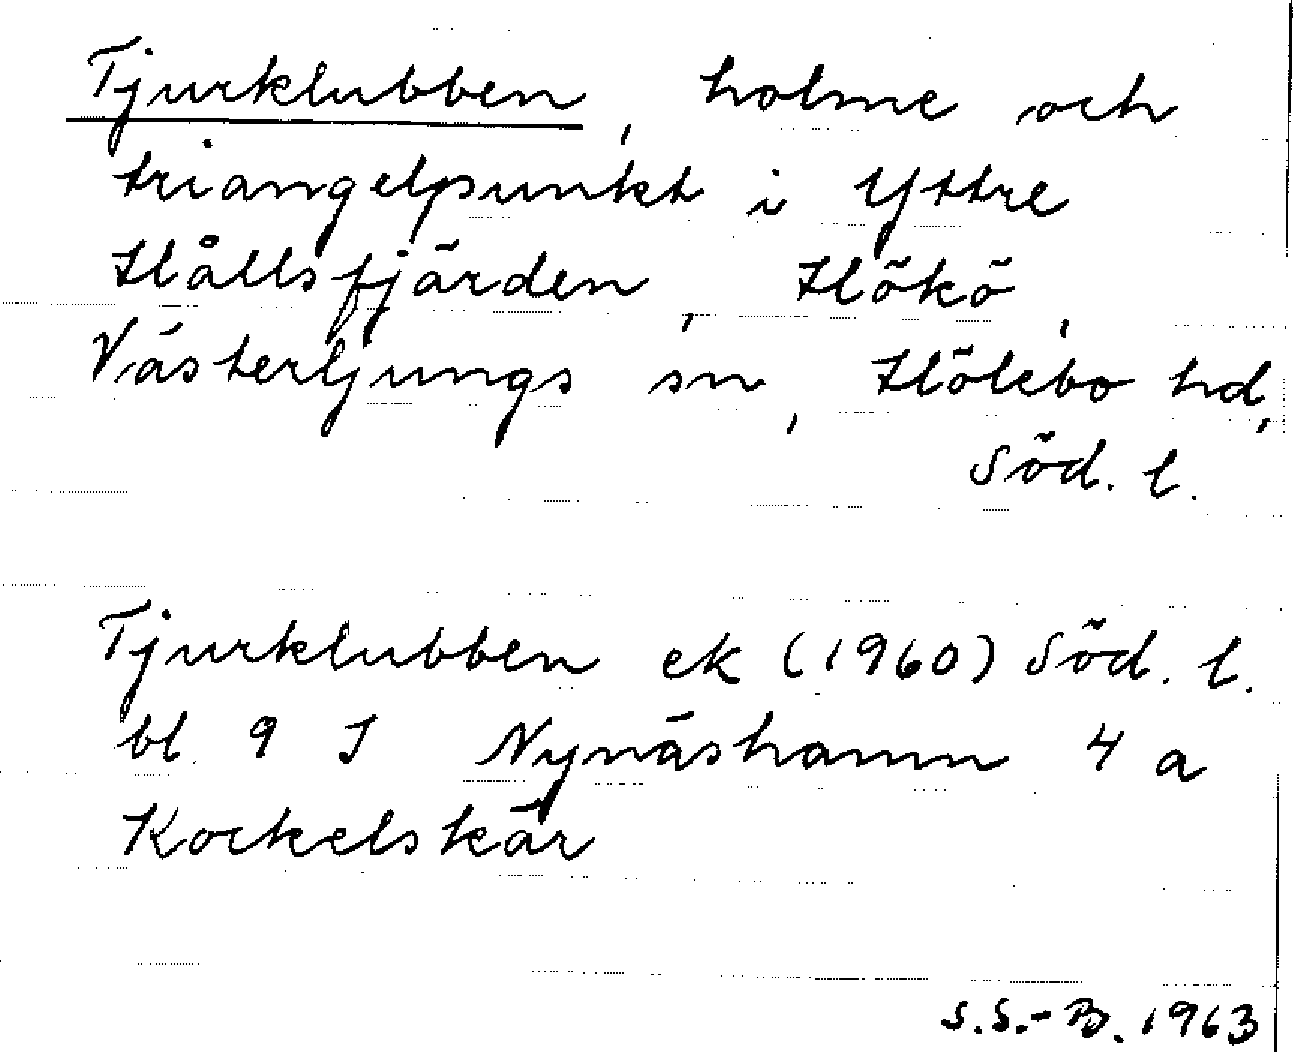 Tjurklubben, holme och
triangelpunkt i Yttre
Hållsfjärden, Hökö,
Västerljungs sn, Hölebo hd,
Söd. l.
Tjurklubben ek (1960) Söd. l.
bl 9 I Nynäshamn 4 a
Kockelskär
S.S.-B. 1963